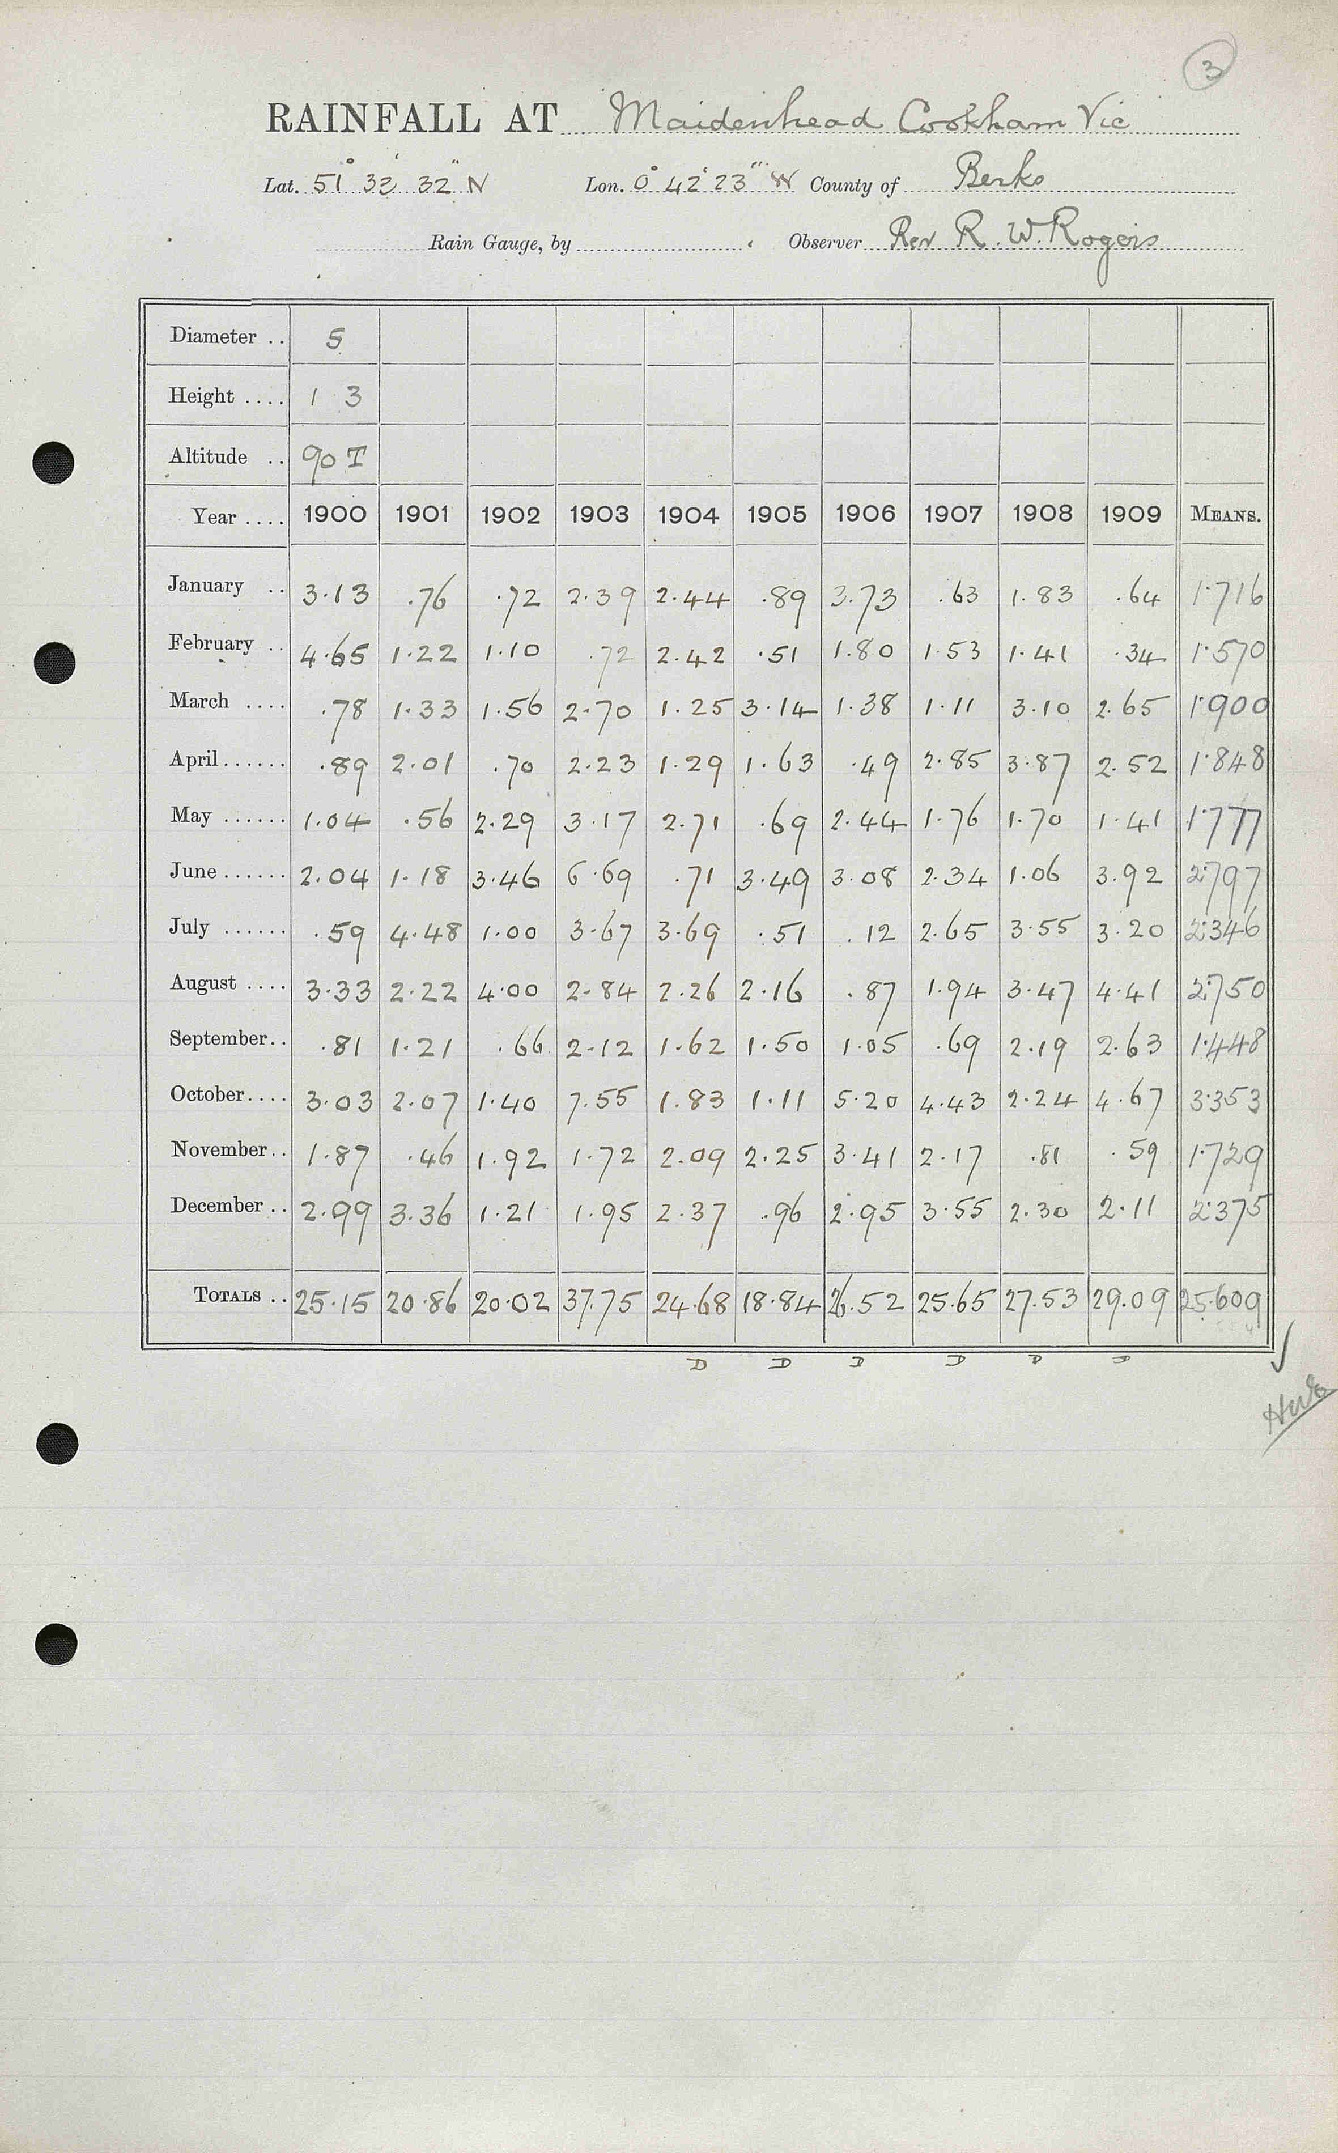 3
RAINFALL AT Maidenhead Cookham Vic
Lat. 51° 32' 32" N Lon. 0° 42' 23" W County of Berks
Rain Gauge, by Observer Rev R. W. Rogers
Diameter .. 5
Height .... 1 3
Altitude .. 90 T
Year .... 1900 1901 1902 1903 1904 1905 1906 1907 1908 1909 MEANS.
January .. 3.13 .76 .72 2.39 2.44 .89 3.73 .63 1.83 .64 1.716
February .. 4.65 1.22 1.10 .72 2.42 .51 1.80 1.53 1.41 .34 1.570
March .... .78 1.33 1.56 2.70 1.25 3.14 1.38 1.11 3.10 2.65 1.900
April...... .89 2.01 .70 2.23 1.29 1.63 .49 2.85 3.87 2.52 1.848
May ...... 1.04 .56 2.29 3.17 2.71 .69 2.44 1.76 1.70 1.41 1.777
June ...... 2.04 1.18 3.46 6.69 .71 3.49 3.08 2.34 1.06 3.92 2.797
July ...... .59 4.48 1.00 3.67 3.69 .51 .12 2.65 3.55 3.20 2.346
August .... 3.33 2.22 4.00 2.84 2.26 2.16 .87 1.94 3.47 4.41 2.750
September.. .81 1.21 .66 2.12 1.62 1.50 1.05 .69 2.19 2.63 1.448
October.... 3.03 2.07 1.40 7.55 1.83 1.11 5.20 4.43 2.24 4.67 3.353
November.. 1.87 .46 1.92 1.72 2.09 2.25 3.41 2.17 .81 .59 1.729
December .. 2.99 3.36 1.21 1.95 2.37 .96 2.95 3.55 2.30 2.11 2.375
TOTALS .. 25.15 20.86 20.02 37.75 24.68 18.84 26.52 25.65 27.53 29.09 25.609
D D D D D D